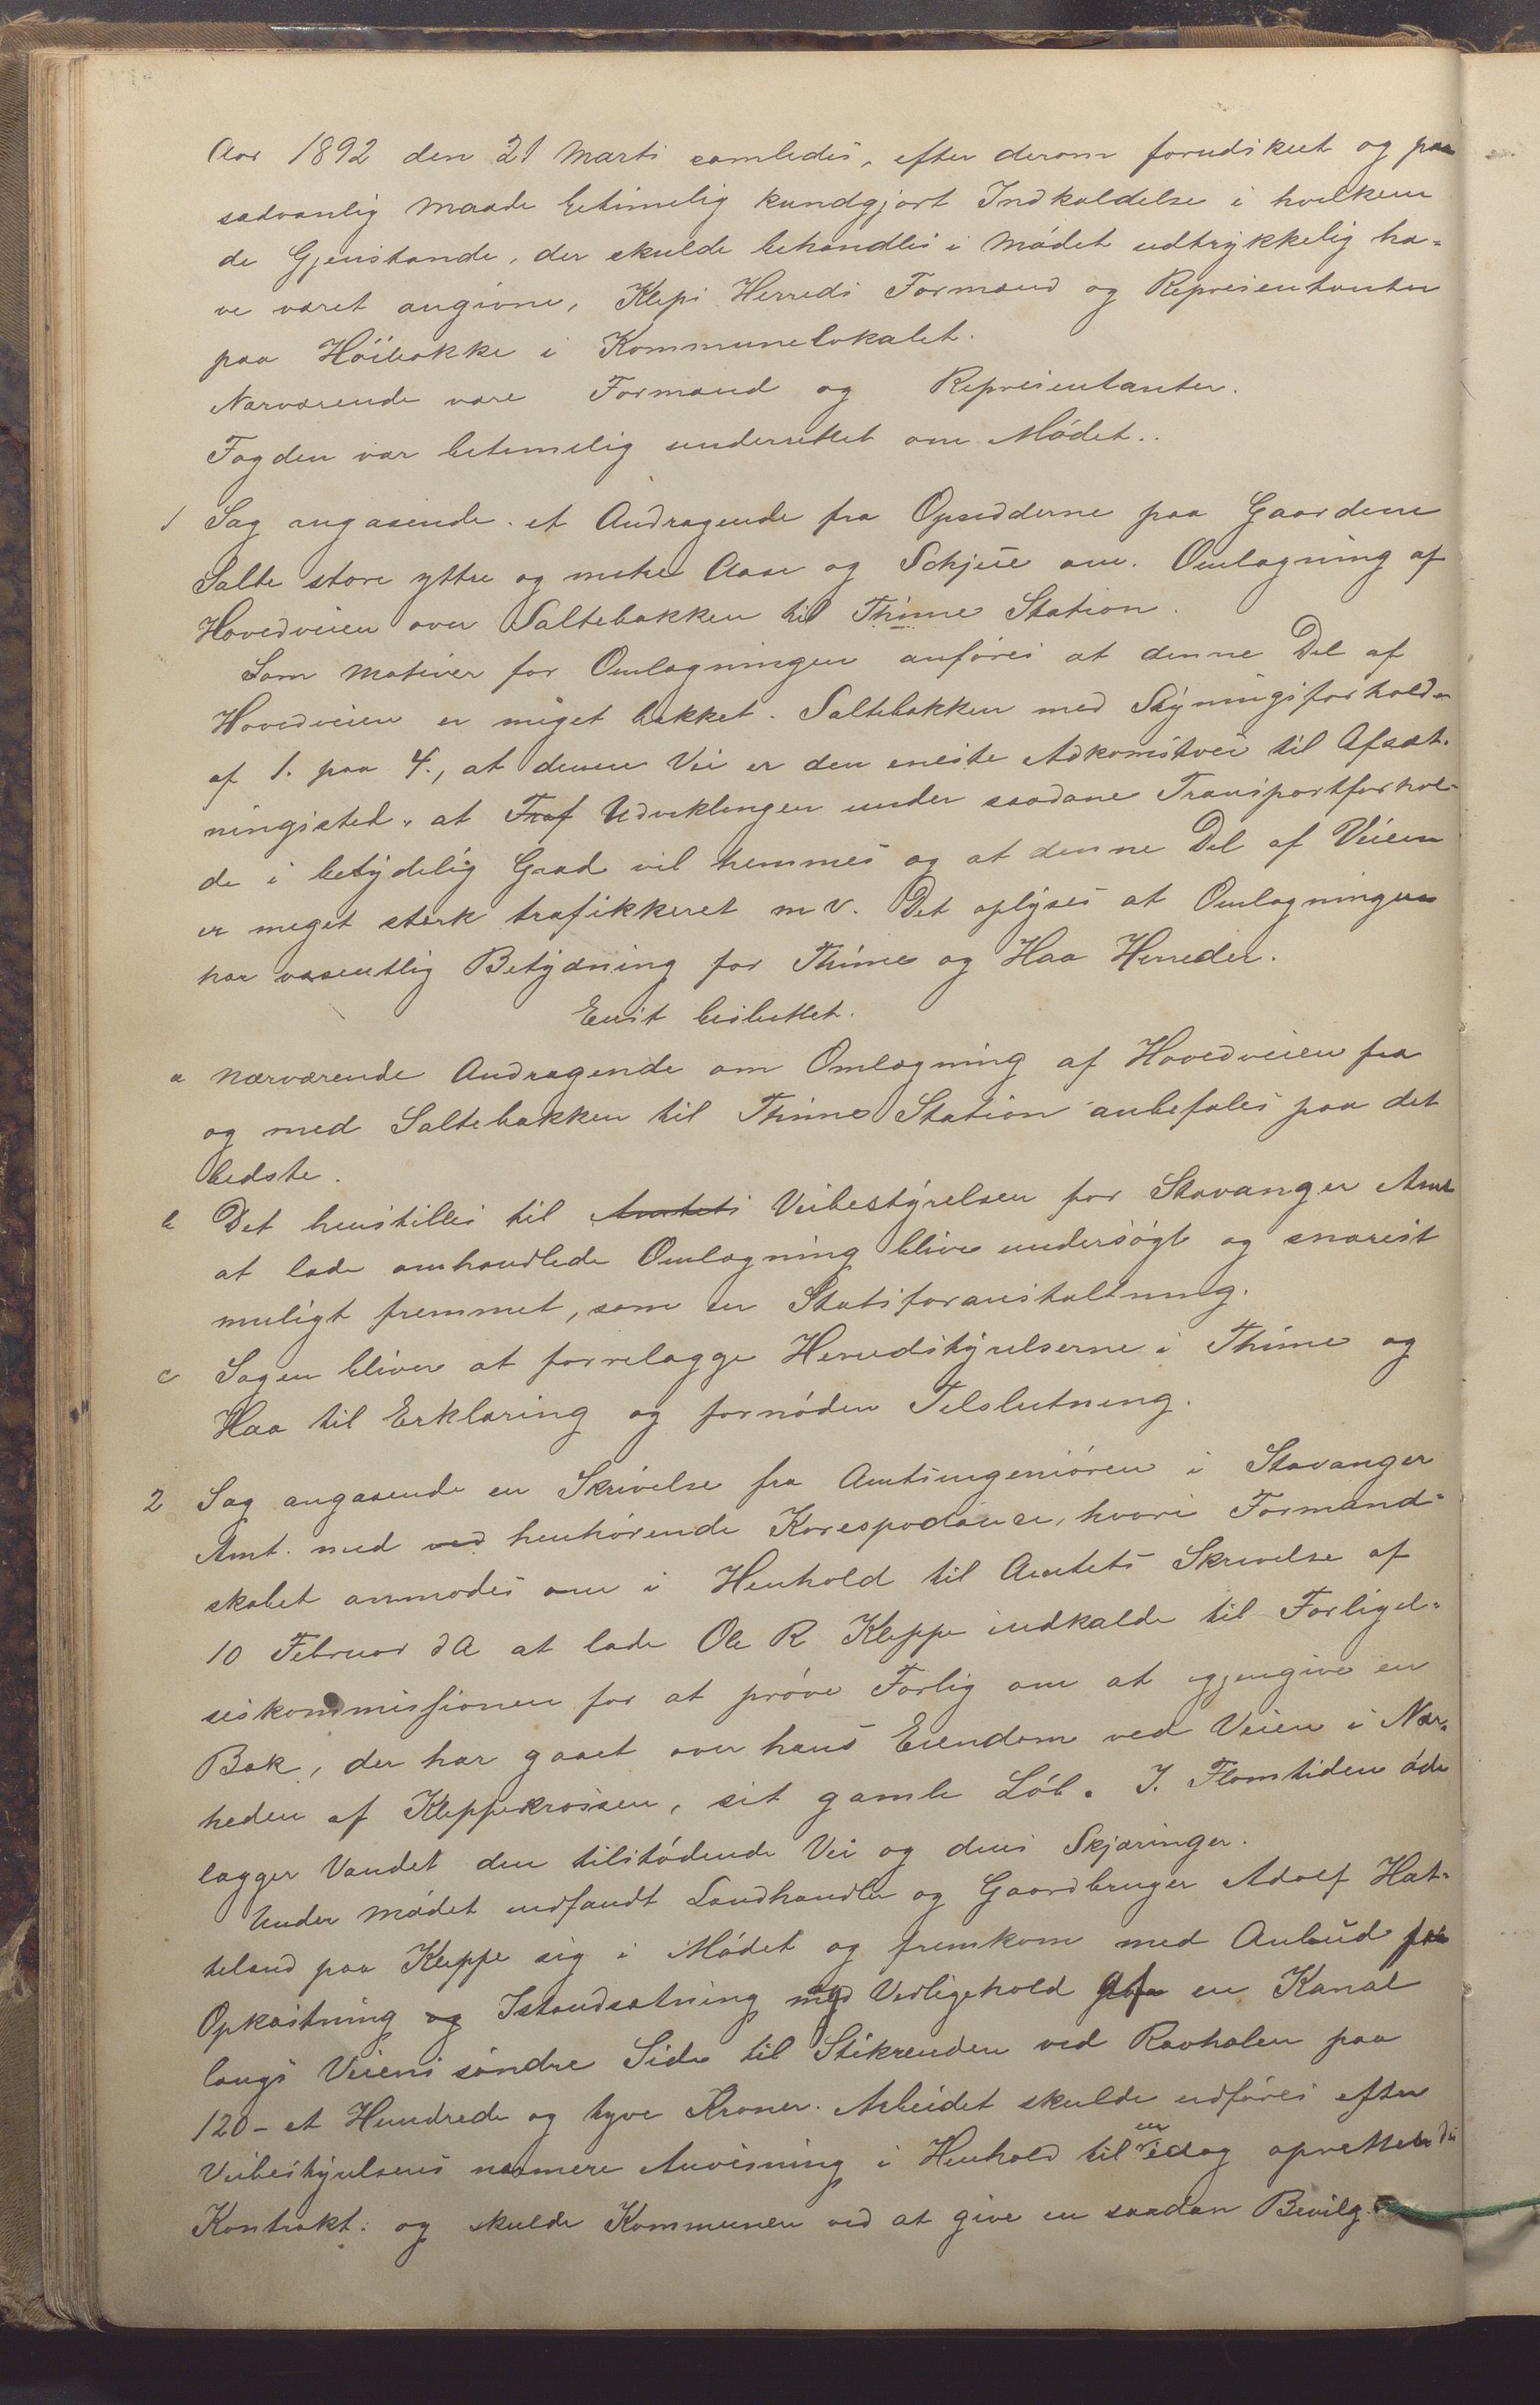 Aar 1892 den 21 Marts samledes, efter derom forudskeet og paa
sædvanlig Maade betimelig kundgjort Indkaldelse i hvilken
de Gjenstande, der skulde behandles i Mödet udtrykkelig ha-
ve været angivne, Kleps Herreds Formænd og Repræsentanter
paa Höibakke i Kommunelokalet.
Nærværende vare Formænd og Repræsentanter.
Fogden var betimelig underrettet om Mödet.
1 Sag angaaende et Andragende fra Opsidderne paa Gaardene
Salte store yttre og mitre Aase og Schjeie om Omlægning af
Hovedveien over Saltebakken til Thime Station.
Som Motiver for Omlægningen anföres at denne Del af
Hovedveien er meget bakket. Saltebakken med Stigningsforholde
af 1. paa 4., at denne Vei er den eneste Adkomstvei til Afsæt-
ningssted, at Traf Udviklingen under saadane Transportforhol-
de i betydelig Grad vil hemmes og at denne Del af Veien
er meget stærk trafikkeret m v. Det oplyses at Omlægningen
har væsentlig Betydning for Thime og Haa Herreder.
Enst besluttet.
a Nærværende Andragende om Omlægning af Hovedveien fra
og med Saltebakken til Thime Station anbefales paa det
bedste.
b Det henstilles til Amtets Veibestyrelsen for Stavanger Amt
at lade omhandlede Omlægning blive undersögt og snarest
muligt fremmet, som en Statsforanstaltning.
c Sagen bliver at forrelægge Herredstyrelserne i Thime og
Haa til Erklæring og fornöden Tilslutning.
2 Sag angaaende en Skrivelse fra Amtsingeniören i Stavanger
Amt. med ved henhörende Korespodance, hvori Formand-
skabet anmodes om i Henhold til Amtets Skrivelse af
10 Februar d A at lade Ole R Kleppe indkalde til Forligel-
seskommissionen for at pröve Forlig om at gjengive en
Bæk, der har gaaet over hans Eiendom ved Veien i Nær-
heden af Kleppekrossen, sit gamle Löb. I Flomtiden öde
lægger Vandet den tilstödende Vei og dens Skjæringer.
Under Mödet indfandt Landhandler og Gaardbruger Adolf Hat-
teland paa Kleppe sig i Mödet og fremkom med Anbud paa
Opkastning og Istandsætning med Vedligehold af en Kanal
langs Veiens söndre Side til Stikrenden ved Ravholen paa
120 - et Hundrede og tyve Kroner. Arbeidet skulde udföres efter
Veibestyrelsens nærmere Anvisning i Henhold til en idag oprettende
Kontrakt. og skulde Kommunen ved at give en saadan Bevilg-